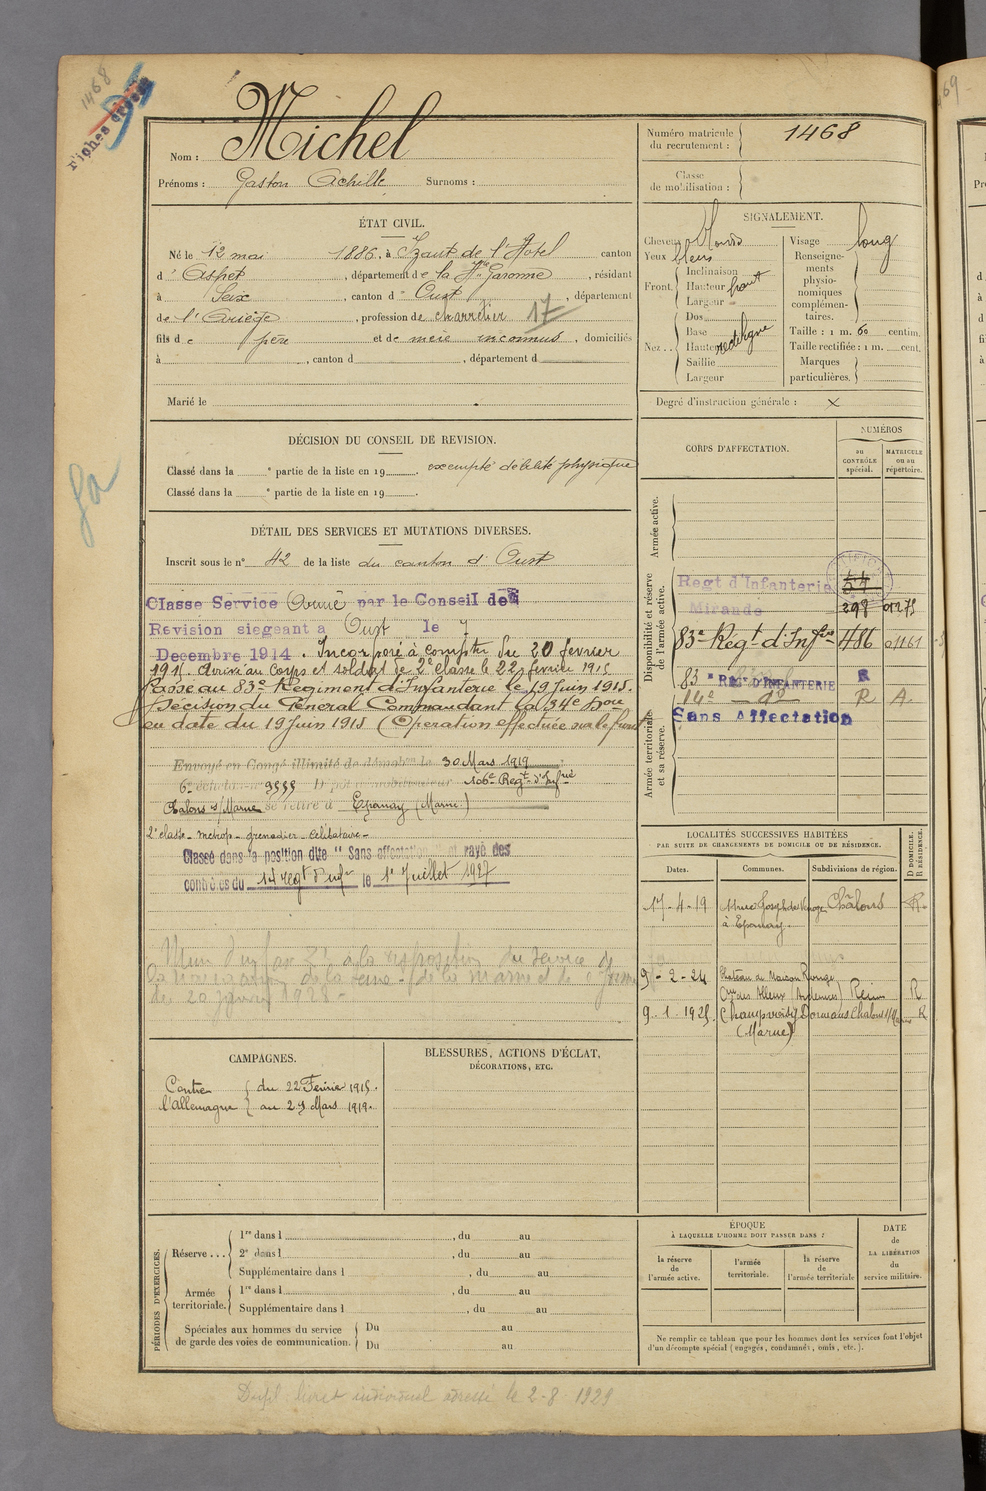 1468
Fiches
Michel
Nom :
Prénoms : Gaston Achille Surnoms :
Numéro matricule du recrutement : 1468
Classe de mobilisation :
ÉTAT CIVIL.
Né le 12 mai 1886, à Izaut de l'Hotel canton
d'Aspet, département de la Hte Garonne, résidant
à Seix, canton d'Oust, département
de l'Ariège, profession de charretier 17
fils de père et de mère inconnus, domiciliés
à , canton d , département d
Marié le
SIGNALEMENT.
Cheveux blonds
Yeux bleus
Front. Inclinaison
Hauteur haut
Largeur
Nez . . Dos
Base
Hauteur rectiligne
Saillie
Largeur
Visage long
Renseignements physionomiques complémentaires.
Taille : 1 m. 60 centim.
Taille rectifiée : 1 m. cent.
Marques particulières.
Degré d'instruction générale : X
DÉCISION DU CONSEIL DE REVISION.
Classé dans la e partie de la liste en 19 . exempté débilité physique
Classé dans la e partie de la liste en 19 .
DÉTAIL DES SERVICES ET MUTATIONS DIVERSES.
Inscrit sous le n° 42 de la liste du canton d'Oust
Classe Service Armé par le Conseil de
Revision siegeant a Oust le 7
Decembre 1914. Incorporé à compter du 20 février
1915. Arrivé au Corps et soldat de 2e classe le 22 février 1915
Passé au 83e Régiment d'Infanterie le 19 Juin 1915.
Décision du Général Commandant la 34e Don
en date du 19 Juin 1915 (Opération effectuée sur le front
Envoyé en Congé illimité de démobon le 30 Mars 1919
6e échelon n° 9555 Dépôt démobilisateur 106e Regt d'Infrie
Chalons s/Marne se retire à Epernay (Marne)
2e classe - métrop - grenadier - célibataire -
Classé dans la position dite "Sans affectation" et rayé des
contrôles du 14e regt d'Infie le 1er Juillet 1927
de la Marne
du 20 janvier 1928 -
CORPS D'AFFECTATION.
NUMÉROS
au CONTRÔLE spécial.
MATRICULE ou au répertoire.
Armée active.
Disponibilité et réserve de l'armée active.
Armée territoriale et sa réserve.
Regt d'Infanterie
Mirande 298 01275
83e Régt d'Infrie 486 01161
83e RÉGt D'INFANTERIE R
14e do R A
Sans Affectation
LOCALITÉS SUCCESSIVES HABITÉES
PAR SUITE DE CHANGEMENTS DE DOMICILE OU DE RÉSIDENCE.
D DOMICILE. R RÉSIDENCE.
Dates. Communes. Subdivisions de région.
17-4-19 à Epernay. Châlons R
9-2-24 Chateau de Maison Rouge
Cne des Alleux (Ardennes) Reims R
9.1.1925 Champvoisy Dormans Chalons s/Marne R
(Marne)
CAMPAGNES.
Contre l'Allemagne
du 22 Février 1915.
au 29 Mars 1919.
BLESSURES, ACTIONS D'ÉCLAT,
DÉCORATIONS, ETC.
PÉRIODES D'EXERCICES.
Réserve . . .
1re dans l , du au
2e dans l , du au
Supplémentaire dans l , du au
Armée territoriale.
1re dans l , du au
Supplémentaire dans l , du au
Spéciales aux hommes du service
de garde des voies de communication.
Du au
Du au
ÉPOQUE
À LAQUELLE L'HOMME DOIT PASSER DANS :
la réserve de l'armée active.
l'armée territoriale.
la réserve de l'armée territoriale
DATE de LA LIBÉRATION du service militaire.
Ne remplir ce tableau que pour les hommes dont les services font l'objet
d'un décompte spécial (engagés, condamnés, omis, etc.).
Dupl livret individuel adressé le 2-8-1929